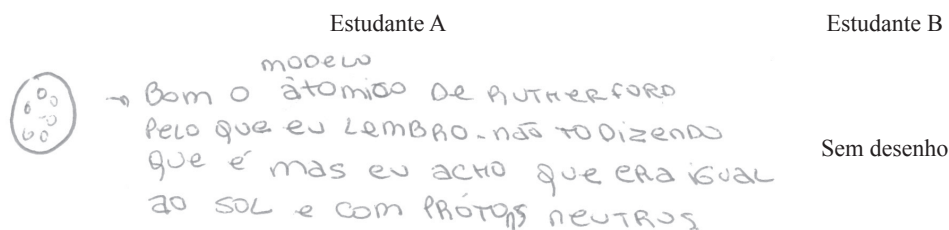 Estudante A
Estudante B
modelo
→ Bom o àtomico De RUTHERFORD
Pelo que eu LemBRO. não TO Dizendo
Que é mas eu acho que era igual
ao SOL e com PRÓTONS neutros
Sem desenho